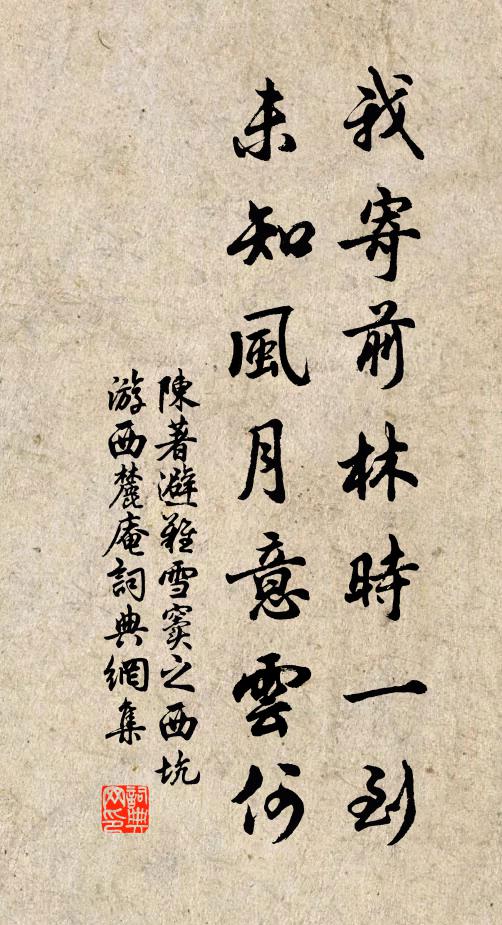 我寄前林時一到
未知風月意雲何
陳著避難雪竇之西坑
游西麓庵詞典網集
詞典网印